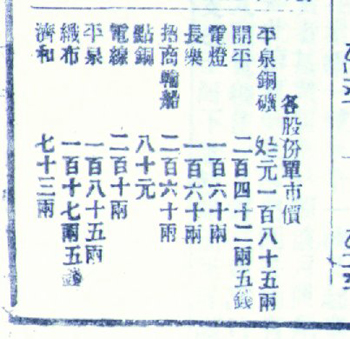 各股份單市價
平泉銅礦 元一百八十五兩
開平 二百四十二兩五錢
電燈 一百六十兩
長樂 一百六十兩
招商輪船 二百六十兩
點銅 八十元
電線 二百十兩
平泉 一百八十五兩
織布 一百十七兩五錢
濟和 七十三兩